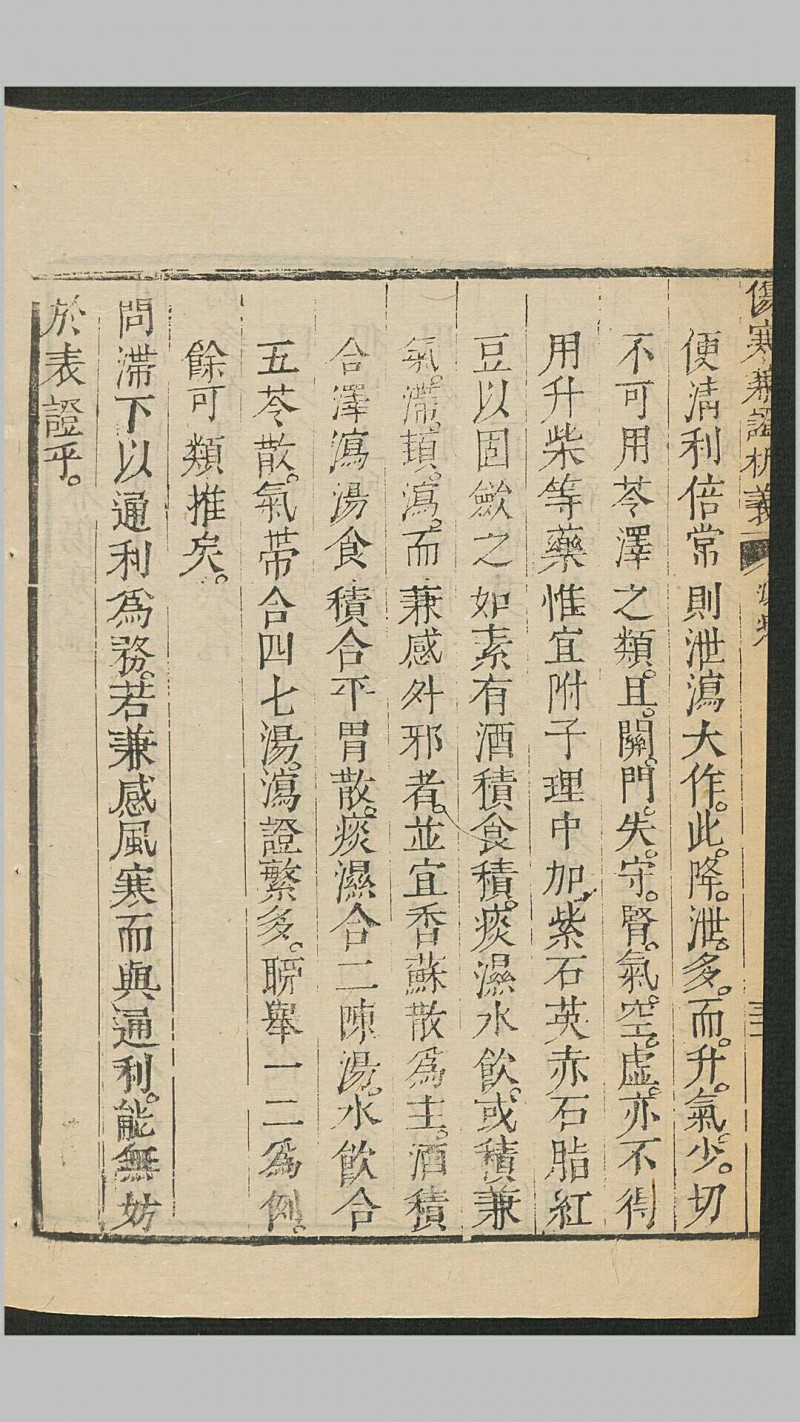 傷寒兼證析義
三
便淸利倍常則泄瀉大作。此。降。泄。多。而。升。氣。少。切
不可用苓澤之類。且。關。門。失。守。腎。氣。空。虛。亦不得
用升柴等藥惟宜附子理中加紫石英赤石脂紅
豆以固斂之如素有酒積食積。痰濕水飲。或積兼
氣。滯。頻。瀉。而兼感外邪者。並宜香蘇散爲主。酒積
合澤瀉湯食積合平胃散。痰濕合二陳湯。水飲合
五苓散。氣滯合四七湯。瀉證繁多。聊舉一二爲例。
餘可類推矣。
問滯下以通利爲務。若兼感風寒而與通利。能無妨
於表證乎。